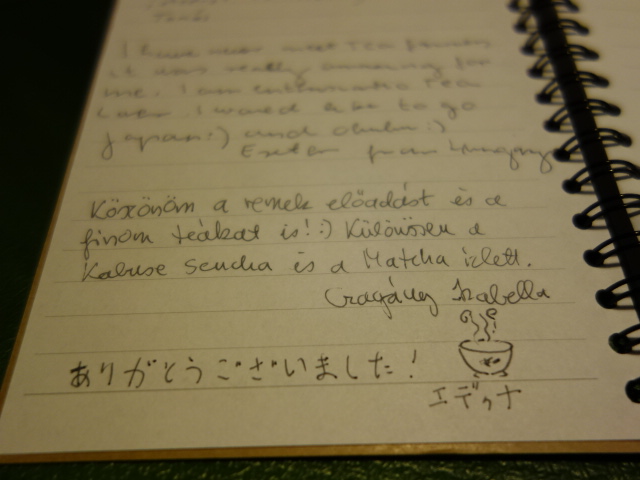 I have never met Tea farmers
it was really amazing for
me. I am enthusiastic Tea
Lover. I would like to go
Japan:) and drink:)
Eszter from Hungary
Köszönöm a remek előadást és a
finom teákat is! :) Különösen a
Kabuse Sencha és a Matcha ízlett.
Izabella
ありがとうございました!
エディナ